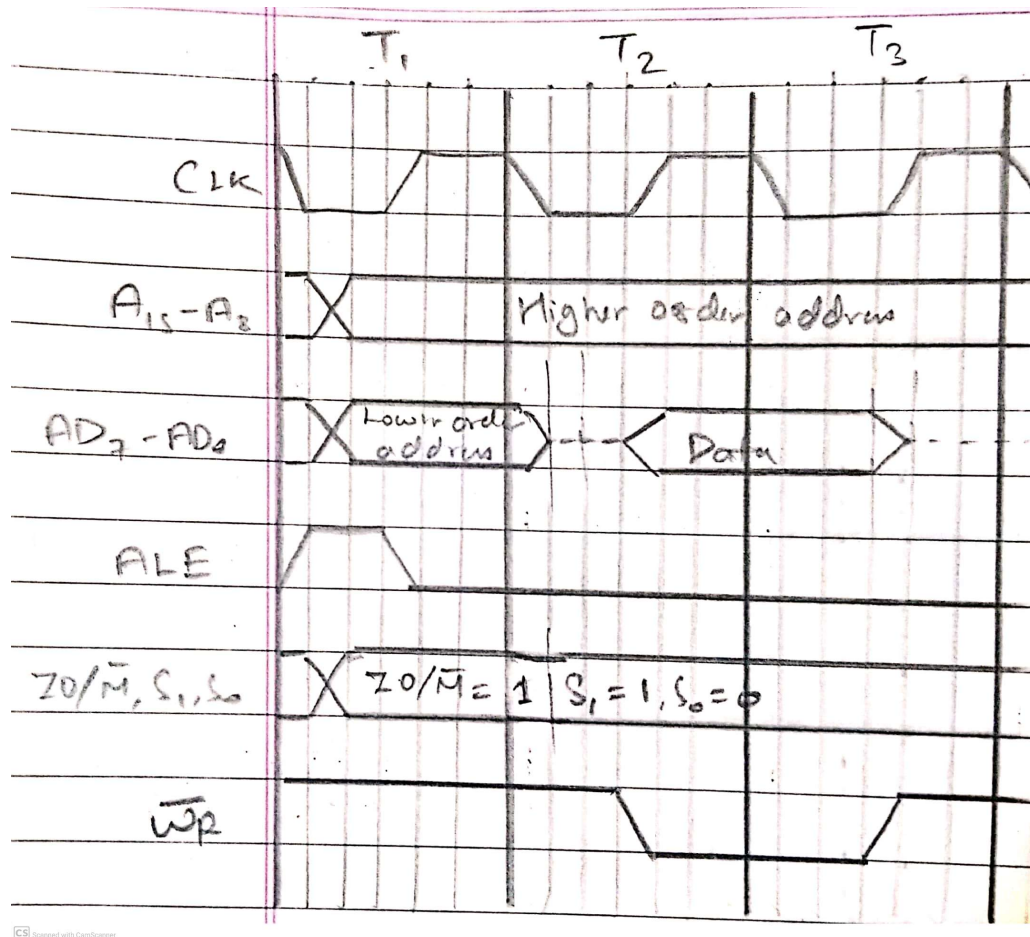 T₁ T₂ T₃
CLK
A₁₅-A₈
Higher order address
AD₇-AD₀
Lower order
address
Data
ALE
IO/M̅, S₁, S₀
IO/M̅ = 1 S₁ = 1, S₀ = 0
W̅R̅
CS Scanned with CamScanner